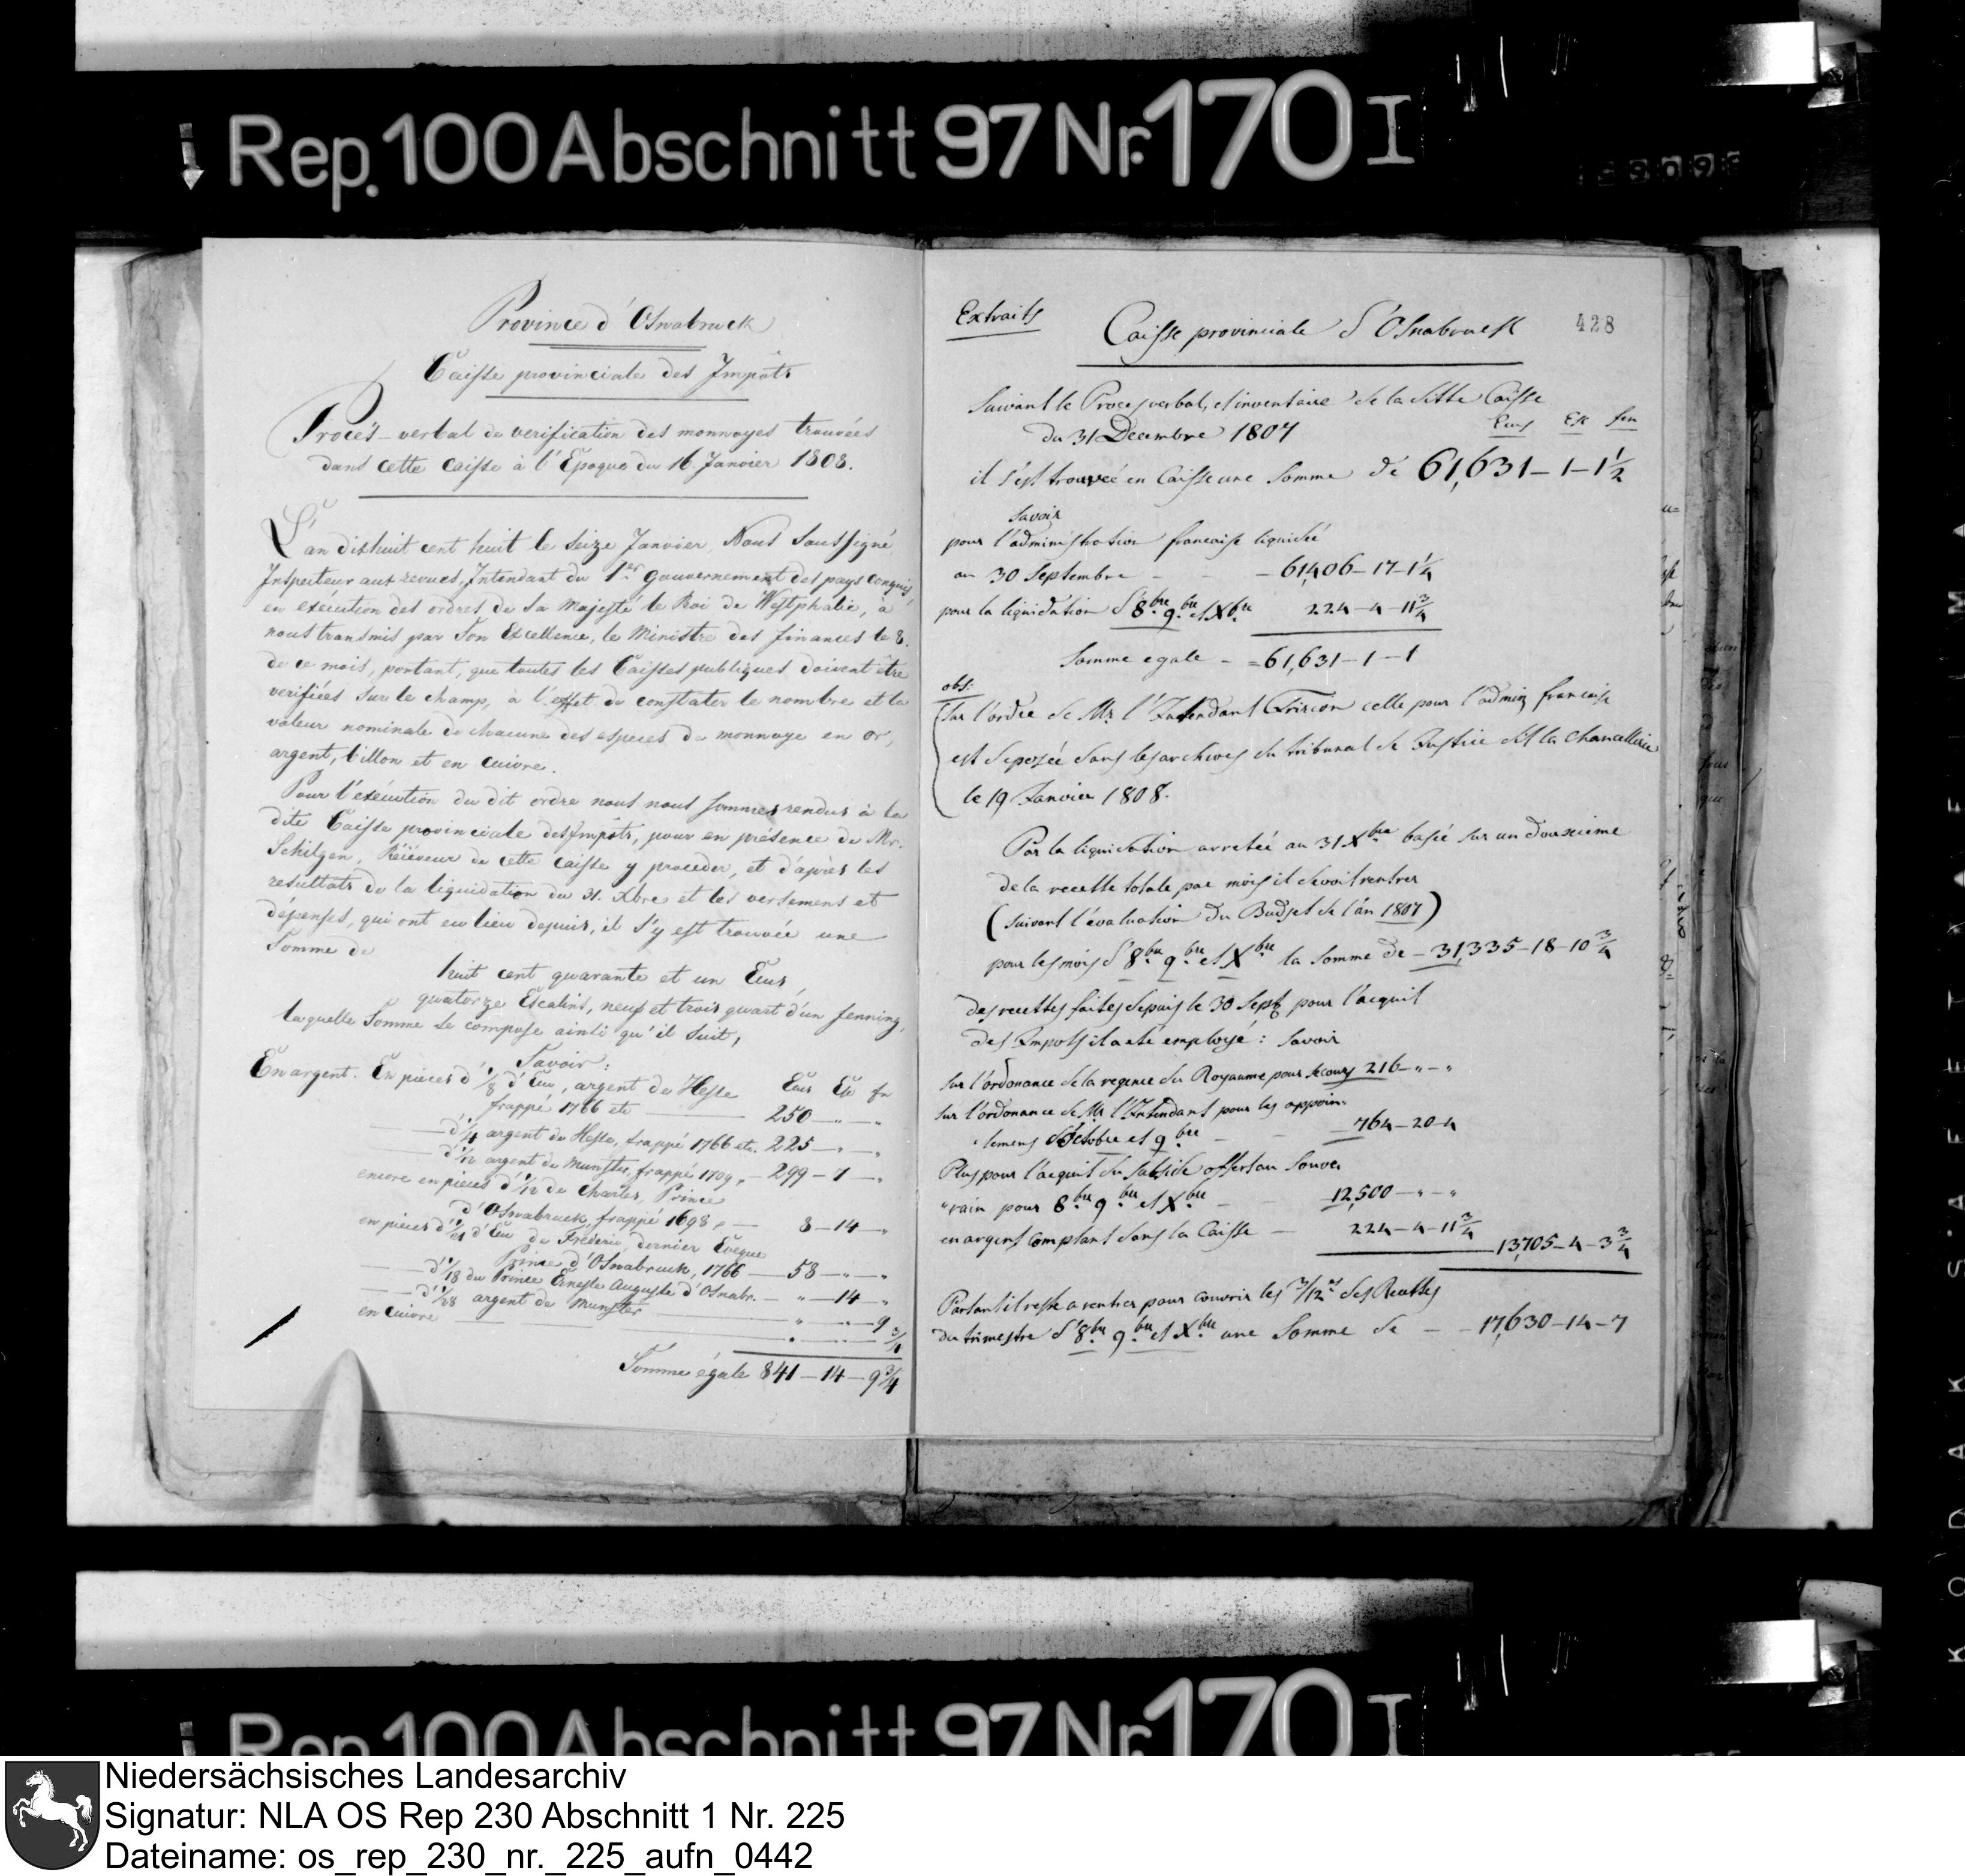 Rep. 100 Abschnitt 97 Nr. 170 I
Province d'Osnabruck
Caisse provinciale des Impôts
Procès-verbal de verification des monnoyes trouvées
dans cette Caisse à l'Epoque du 16. Janvier 1808.
L'an dixhuit cent huit le Seize Janvier, Nous Soussigné
Inspecteur aux revues, Intendant du 1er Gouvernement des pays conquis,
en exécution des ordres de Sa Majesté le Roi de Westphalie, à
nous transmis par Son Excellence, le Ministre des finances le 8.
de ce mois, portant, que toutes les Caisses publiques doivent être
verifiées sur le champ, à l'effet de constater le nombre et la
valeur nominale de chacune des especes de monnoye en or,
argent, billon et en cuivre.
Pour l'exécution du dit ordre nous nous sommes rendus à la
dite Caisse provinciale des Impôts, pour en présence de Mr.
Schilgen, Réceveur de cette Caisse y proceder, et d'après les
resultats de la liquidation du 31. Xbre et les versemens et
dépenses, qui ont eu lieu depuis, il s'y est trouvée une
Somme de
huit cent quarante et un Ecus,
quatorze Escalins, neuf et trois quart d'un fenning,
laquelle Somme se compose ainsi qu'il suit,
Savoir:
Ecus Esc fn
En argent. En pièces d'1/8 d'Ecu, argent de Hesse
frappé 1766 etc 250 — " — "
— d'1/4 argent de Hesse, frappé 1766 etc. 225 — " — "
— d'1/12 argent de Munster, frappé 1709, — 299 — 7 — "
encore en pieces d'1/12 de Charles, Prince
d'Osnabruck, frappé 1698, — 8 — 14 — "
en pieces d'1/21 d'Ecu de Frederic, dernier Evêque
Prince d'Osnabruck, 1766 — 58 — " — "
— d'1/18 du Prince Erneste Auguste d'Osnabr. — " — 14 — "
— d'1/28 argent de Munster — " — " — 9
en cuivre — " — " — 3/4
Somme égale 841 — 14 — 9 3/4
Extraits
Caisse provinciale d'Osnabruck
428
Suivant le Proces verbal, et inventaire de la ditte Caisse
du 31 Decembre 1807
Ecus Esc fen
il s'est trouvée en Caisse une Somme de 61,631 — 1 — 1 1/2
Savoir
pour l'administration francaise liquidée
au 30 Septembre — 61,406 — 17 — 1 1/4
pour la liquidation d'8bre 9bre et Xbre 224 — 4 — 11 3/4
Somme egale — = 61,631 — 1 — 1
obs:
Sur l'ordre de Mr l'Intendant Frircon celle pour l'admin francaise
est deposée dans les archives du tribunal de Justice dit la Chancellerie
le 19 Janvier 1808.
Par la liquidation arretée au 31 Xbre basée sur un douxieme
de la recette totale par mois il devoit rentrer
(suivant l'évaluation du Budjet de l'an 1807)
pour les mois d'8bre 9bre et Xbre la Somme de — 31,335 — 18 — 10 3/4
des recettes faites depuis le 30 Sept pour l'acquit
des Impots il a été employé: Savoir
sur l'ordonance de la regence du Royaume pour secours 216 — " — "
sur l'ordonance de Mr l'Intendant pour les appoin-
"temens d'Octobre et 9bre — 764 — 20 — 4
Plus pour l'acquit du subside offert au Souve-
"rain pour 8bre 9bre et Xbre — 12,500 — " — "
en argent comptant dans la Caisse — 224 — 4 — 11 3/4
13,705 — 4 — 3 3/4
Partant il reste a rentrer pour couvrir les 3/12es des Recettes
du trimestre d'8bre 9bre et Xbre une Somme de — 17,630 — 14 — 7
KODAK SAFETY FILM
Rep. 100 Abschnitt 97 Nr. 170 I
Niedersächsisches Landesarchiv
Signatur: NLA OS Rep 230 Abschnitt 1 Nr. 225
Dateiname: os_rep_230_nr._225_aufn_0442